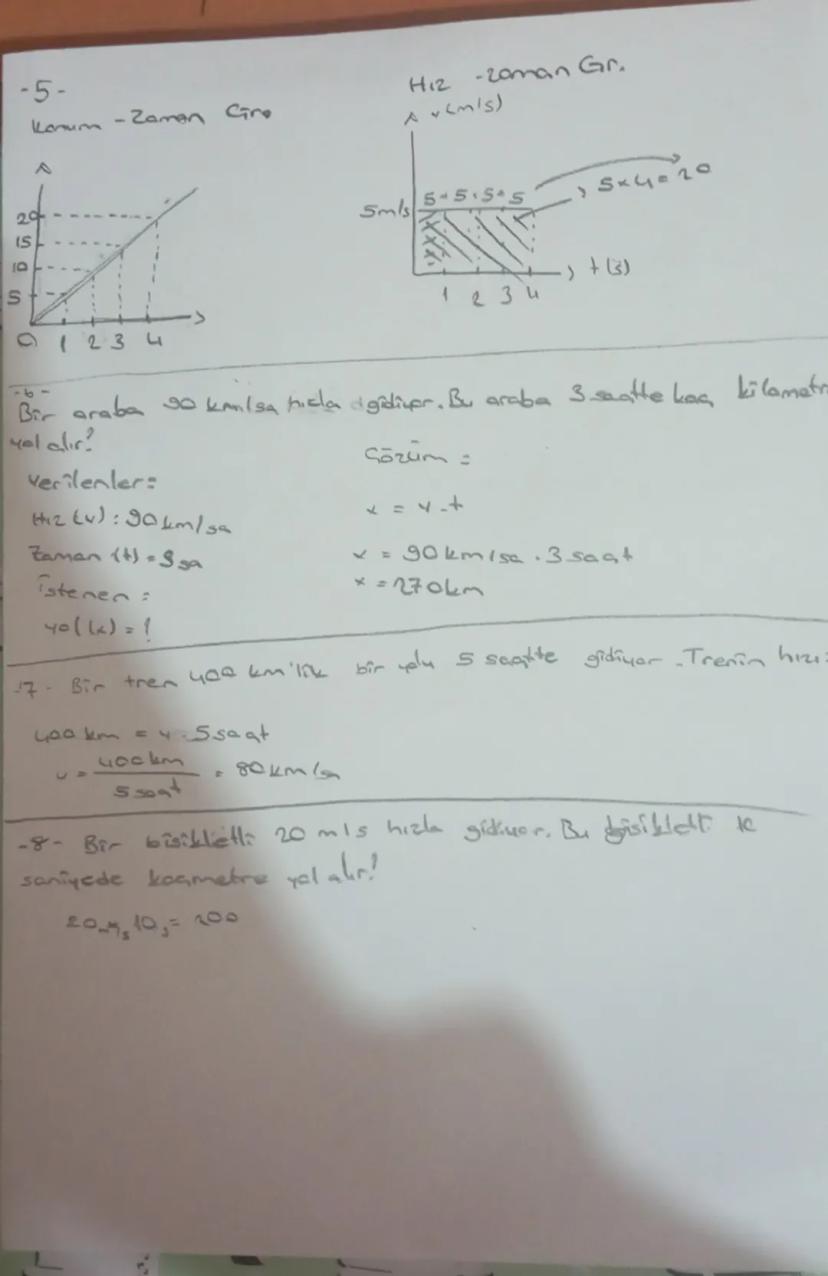 -5-
Konum - Zaman Gra
20
15
10
5
0 1 2 3 4
Hız - zaman Gr.
v (m/s)
5 5 5 5
5x4=20
5m/s
t (s)
1 2 3 4
-6-
Bir araba 90 km/sa hızla gidiyor. Bu araba 3 saatte kaç kilometr
yol alır?
Verilenler:
Hız (v) : 90 km/sa
Zaman (t) = 3 sa
İstenen :
yol (x) = !
Çözüm =
x = v . t
x = 90 km/sa . 3 saat
x = 270 km
-7- Bir tren 400 km'lik bir yolu 5 saatte gidiyor. Trenin hızı
400 km = v . 5 saat
v = 400 km / 5 saat = 80 km/sa
-8- Bir bisikletli 20 m/s hızla gidiyor. Bu bisikletli
saniyede kaç metre yol alır?
20 m/s 10 s = 200